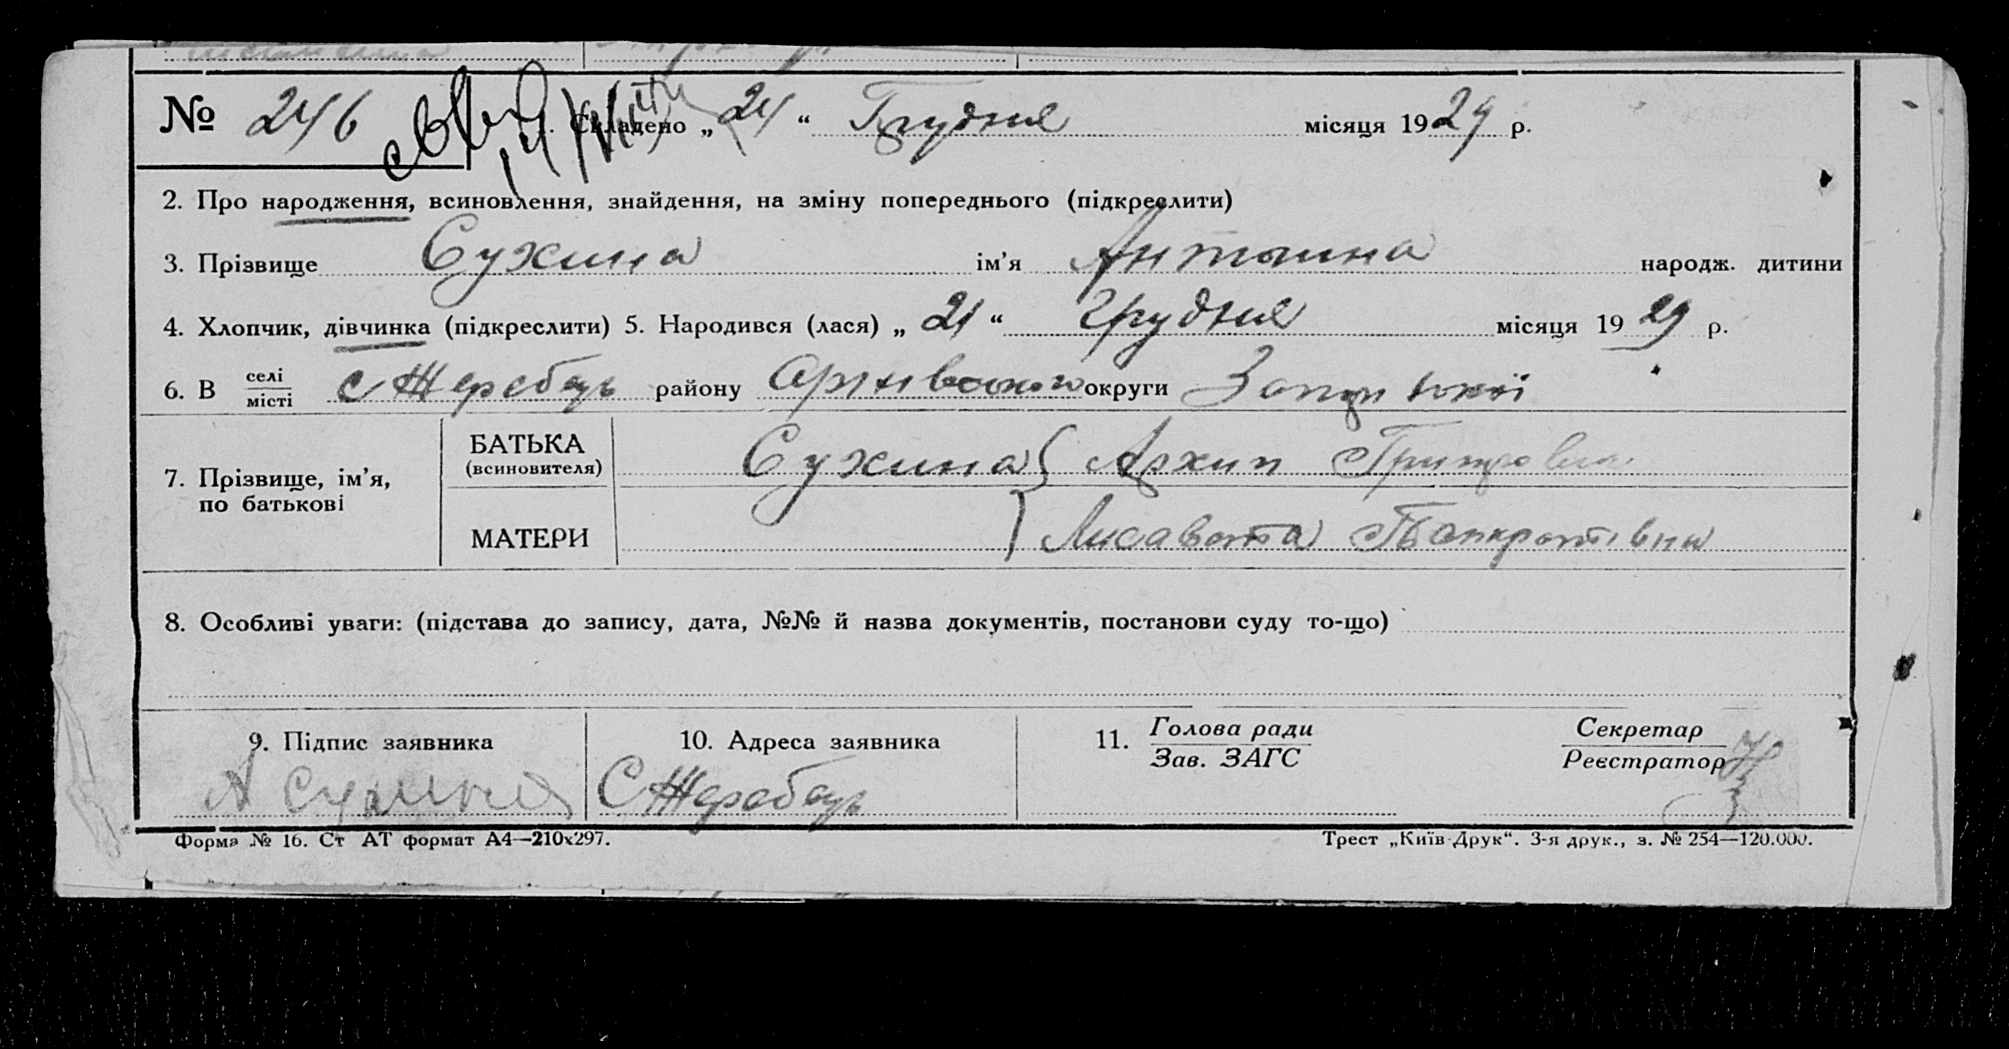 № 246 Складено „24“ Грудня місяця 1929 р.
2. Про народження, всиновлення, знайдення, на зміну попереднього (підкреслити)
3. Прізвище Сухина ім’я Антонина народж. дитини
4. Хлопчик, дівчинка (підкреслити) 5. Народився (лася) „21“ грудня місяця 1929 р.
6. В селі місті с Жеребець району округи
7. Прізвище, ім’я, по батькові
БАТЬКА (всиновителя) Сухина Архип
МАТЕРИ Лисавета Панкратівна
8. Особливі уваги: (підстава до запису, дата, №№ й назва документів, постанови суду то-що)
9. Підпис заявника 10. Адреса заявника 11. Голова ради Секретар
Зав. ЗАГС Реєстратор
А Сухина С Жеребець
Форма № 16. Ст АТ формат А4—210х297. Трест „Київ-Друк“. 3-я друк., з. № 254—120.000.